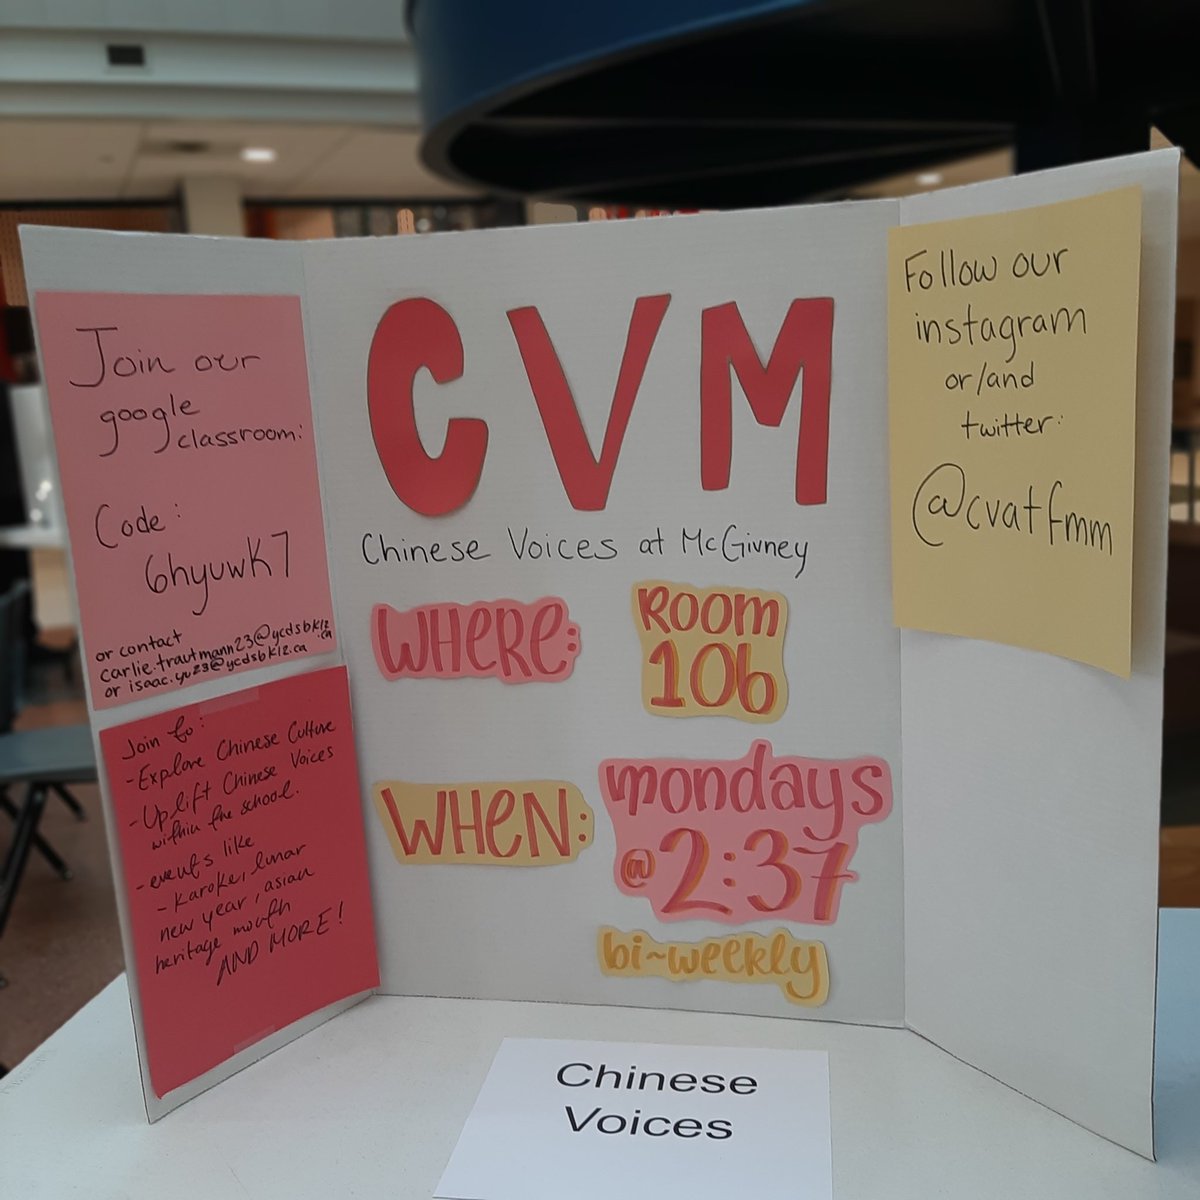 Join our
google
classroom:
Code:
6hyuwK7
or contact
carlie.trautmann23@ycdsbk12
.ca
or isaac.yu23@ycdsbk12.ca
Join to:
-Explore Chinese Culture
-Uplift Chinese Voices
within the school.
-events like
-Karoke, lunar
new year, asian
heritage month
AND MORE!
CVM
Chinese Voices at McGivney
WHERE:
ROOM
106
WHEN:
mondays
@ 2:37
bi-weekly
Follow our
instagram
or/and
twitter:
@cvatfmm
Chinese
Voices